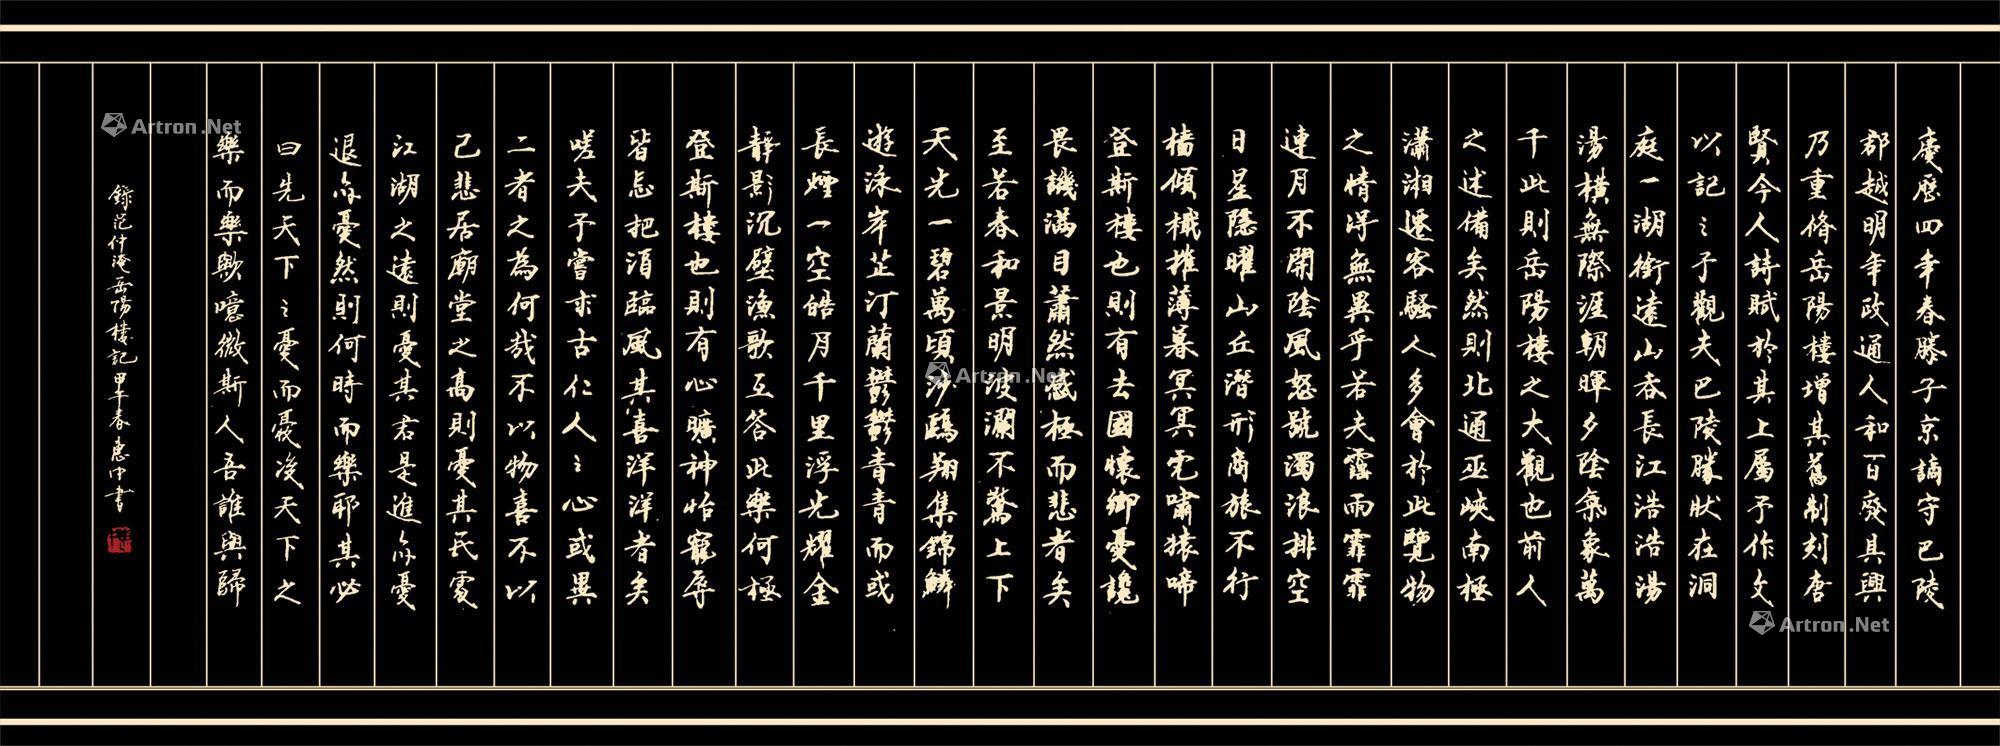 慶歷四年春滕子京謫守巴陵
郡越明年政通人和百廢具興
乃重脩岳陽樓增其舊制刻唐
賢今人詩賦於其上屬予作文
以記之予觀夫巴陵勝狀在洞
庭一湖銜遠山吞長江浩浩湯
湯橫無際涯朝暉夕陰氣象萬
千此則岳陽樓之大觀也前人
之述備矣然則北通巫峽南極
瀟湘遷客騷人多會於此覽物
之情得無異乎若夫霪雨霏霏
連月不開陰風怒號濁浪排空
日星隱曜山丘潛形商旅不行
檣傾檝摧薄暮冥冥虎嘯猿啼
登斯樓也則有去國懷鄉憂讒
畏譏滿目蕭然感極而悲者矣
至若春和景明波瀾不驚上下
天光一碧萬頃沙鷗翔集錦鱗
遊泳岸芷汀蘭鬱鬱青青而或
長煙一空皓月千里浮光耀金
靜影沉璧漁歌互答此樂何極
登斯樓也則有心曠神怡寵辱
皆忘把酒臨風其喜洋洋者矣
嗟夫予嘗求古仁人之心或異
二者之為何哉不以物喜不以
己悲居廟堂之高則憂其民處
江湖之遠則憂其君是進亦憂
退亦憂然則何時而樂耶其必
曰先天下之憂而憂後天下之
樂而樂歟噫微斯人吾誰與歸
錄范仲淹岳陽樓記甲午春惠中書
Artron.Net
Artron.Net
Artron.Net